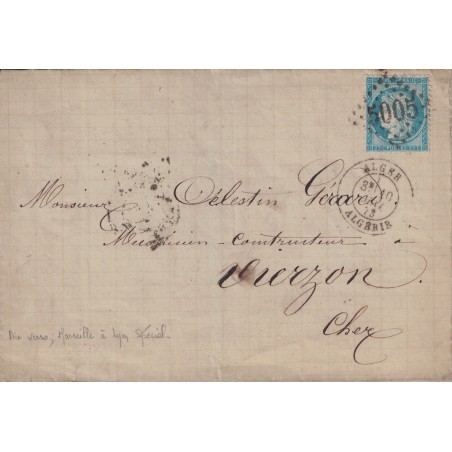 5005
ALGER
10
73
ALGÉRIE
Monsieur Célestin Gérard
Mécanicien-Constructeur à
Vierzon
Cher
verso, Marseille à Lyon Spécial.